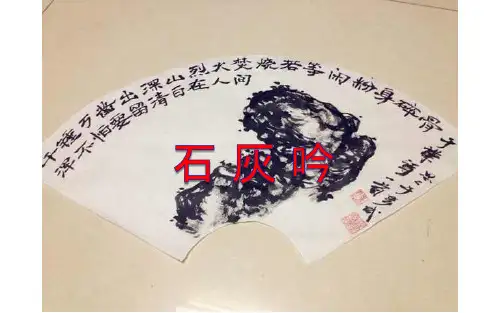 千锤万凿出深山烈火焚烧若等闲粉身碎骨
浑不怕要留清白在人间
于谦诗一首
石灰吟